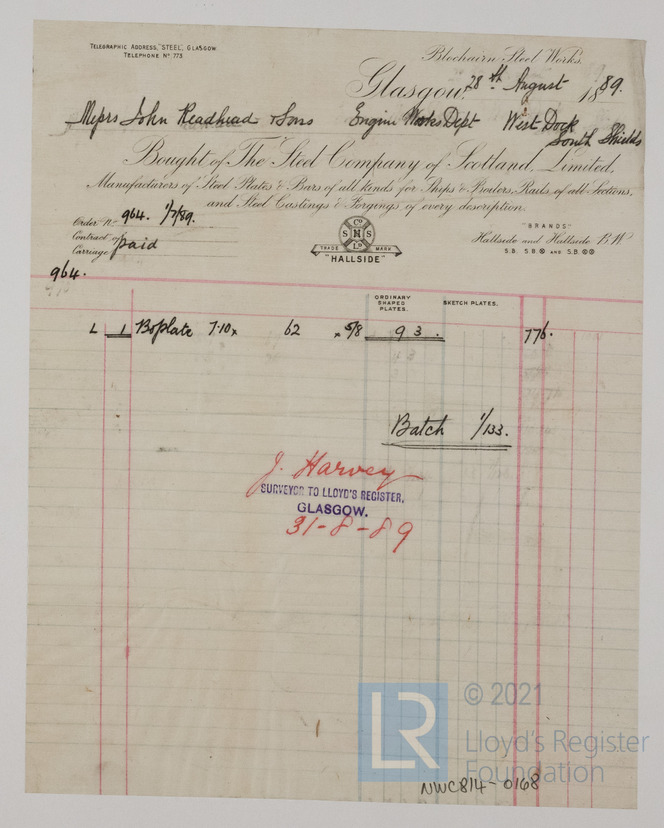 TELEGRAPHIC ADDRESS, "STEEL", GLASGOW.
TELEPHONE No 773.
Blochairn Steel Works,
Glasgow, 28th August 1889.
Messrs John Readhead & Sons Engine Works Dept West Dock
South Shields
Bought of The Steel Company of Scotland, Limited,
Manufacturers of Steel Plates & Bars of all kinds for Ships & Boilers, Rails of all Sections,
and Steel Castings & Forgings of every description.
Order No 964. 1/7/89.
Contract of
Carriage paid
TRADE MARK
Co
S N S
Ld
"HALLSIDE"
"BRANDS"
Hallside and Hallside B.W
S.B. S.B. AND S.B.
964.
ORDINARY SHAPED PLATES.
SKETCH PLATES.
L 1 Bo plate 7·10 x 62 x 5/8 93. 776.
Batch 1/133.
J. Harvey
SURVEYOR TO LLOYD'S REGISTER,
GLASGOW.
31-8-89
LR
© 2021
Lloyd's Register
Foundation
NWC814-0168